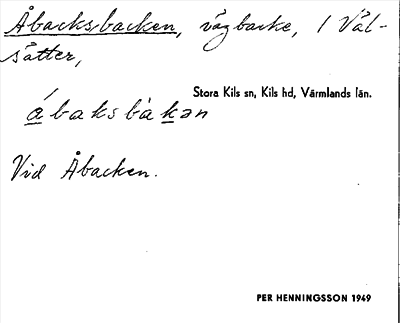 Åbacksbacken, vägbacke, 1 Väl-
sätter,
Stora Kils sn, Kils hd, Värmlands län.
åbaksbàkən
Vid Åbacken.
PER HENNINGSSON 1949